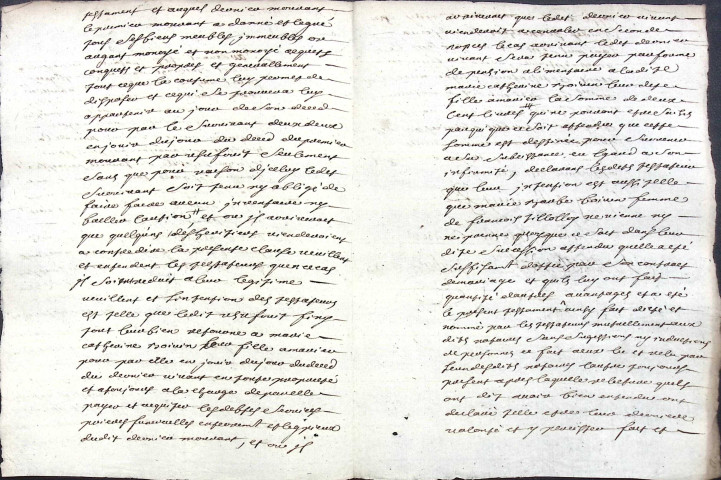 testament et auquel dernier mourant
le premier mourant a donné et legué
tous ses biens meubles immeubles or
argent monoyé et non monoyé acquets
conquets et propres et generallement
tout ce que la coutume luy permet de
disposer et ce qui se trouvera luy
appartenir au jour de son deced
pour par le survivant d'eux deux
en jouir du jour du deced du premier
mourant par usufruit seulement
sans que pour raison d'iceluy ledit
survivant soit tenu ny obligé de
faire faire aucun inventaire ny
bailler caution et où il arriveroit
que quelqu'uns des heritiers viendroient
a contredire la presente clause veuillent
et entendent les testateurs qu'en ce cas
il soit reduit a leur legitime
veuillent et l'intention des testateurs
est telle que ledit usufruit finy
tout leur bien retourne a marie
catherine leur fille
pour par elle en jouir du jour du deced
du dernier vivant en toute proprieté
et a toujours a la charge de par elle
payer et acquiter les dettes services
prieres funerailles enterrement et legs pieux
dudit dernier mourant, et où il
arriveroit que ledit dernier vivant
viendroit a convoler en seconde
nopces le cas arrivant ledit dernier
vivant sera tenu payer par forme
de pension alimentaire a ladite
marie catherine leur dite
fille la somme de deux
cent livres qui ne pourront estre saisis
par qui que ce soit attendu que cette
somme est destinée pour subvenir
a sa subsistance eu egard a son
infirmité, declarant lesdits testateurs
que leur intention est aussi telle
que marie femme
de francois Tilloloy ne vienne ny
ne prenne quoy que ce soit dans leur
dite succession attendu qu'elle a eté
suffisament dottée par son contract
de mariage et qu'ils luy ont fait
quantité d'autres avantages et a eté
le present testament ainsy fait dicté et
nommé par les testateurs mutuellement aux
dits notaires sans suggestions ny inductions
de personnes ce fait a eux lu et relu par
l'un desdits notaires l'autre toujours
present apres laquelle relecture qu'ils
ont dit avoir bien entendu ont
declaré telle estre leur derniere
volonté et y persister fait et